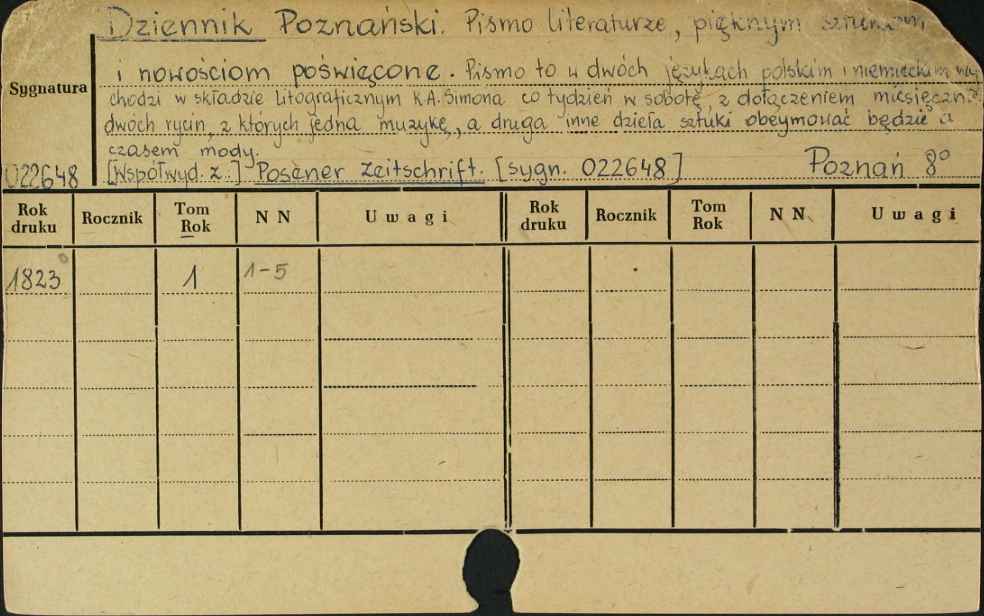 Dziennik Poznański. Pismo literaturze, pięknym sztukom
i nowościom poświęcone. Pismo to w dwóch językach polskim i niemieckim wy-
Sygnatura
chodzi w składzie litograficznym K.A. Simona co tydzień w sobotę, z dołączeniem miesięcznie
dwóch rycin, z których jedna muzykę, a druga inne dzieła sztuki obeymować będzie a
czasem mody.
022648 [Współwyd. z:] Posener Zeitschrift. [sygn. 022648] Poznań 8°
Rok druku Rocznik Tom Rok N N Uwagi Rok druku Rocznik Tom Rok N N Uwagi
1823 1 1-5